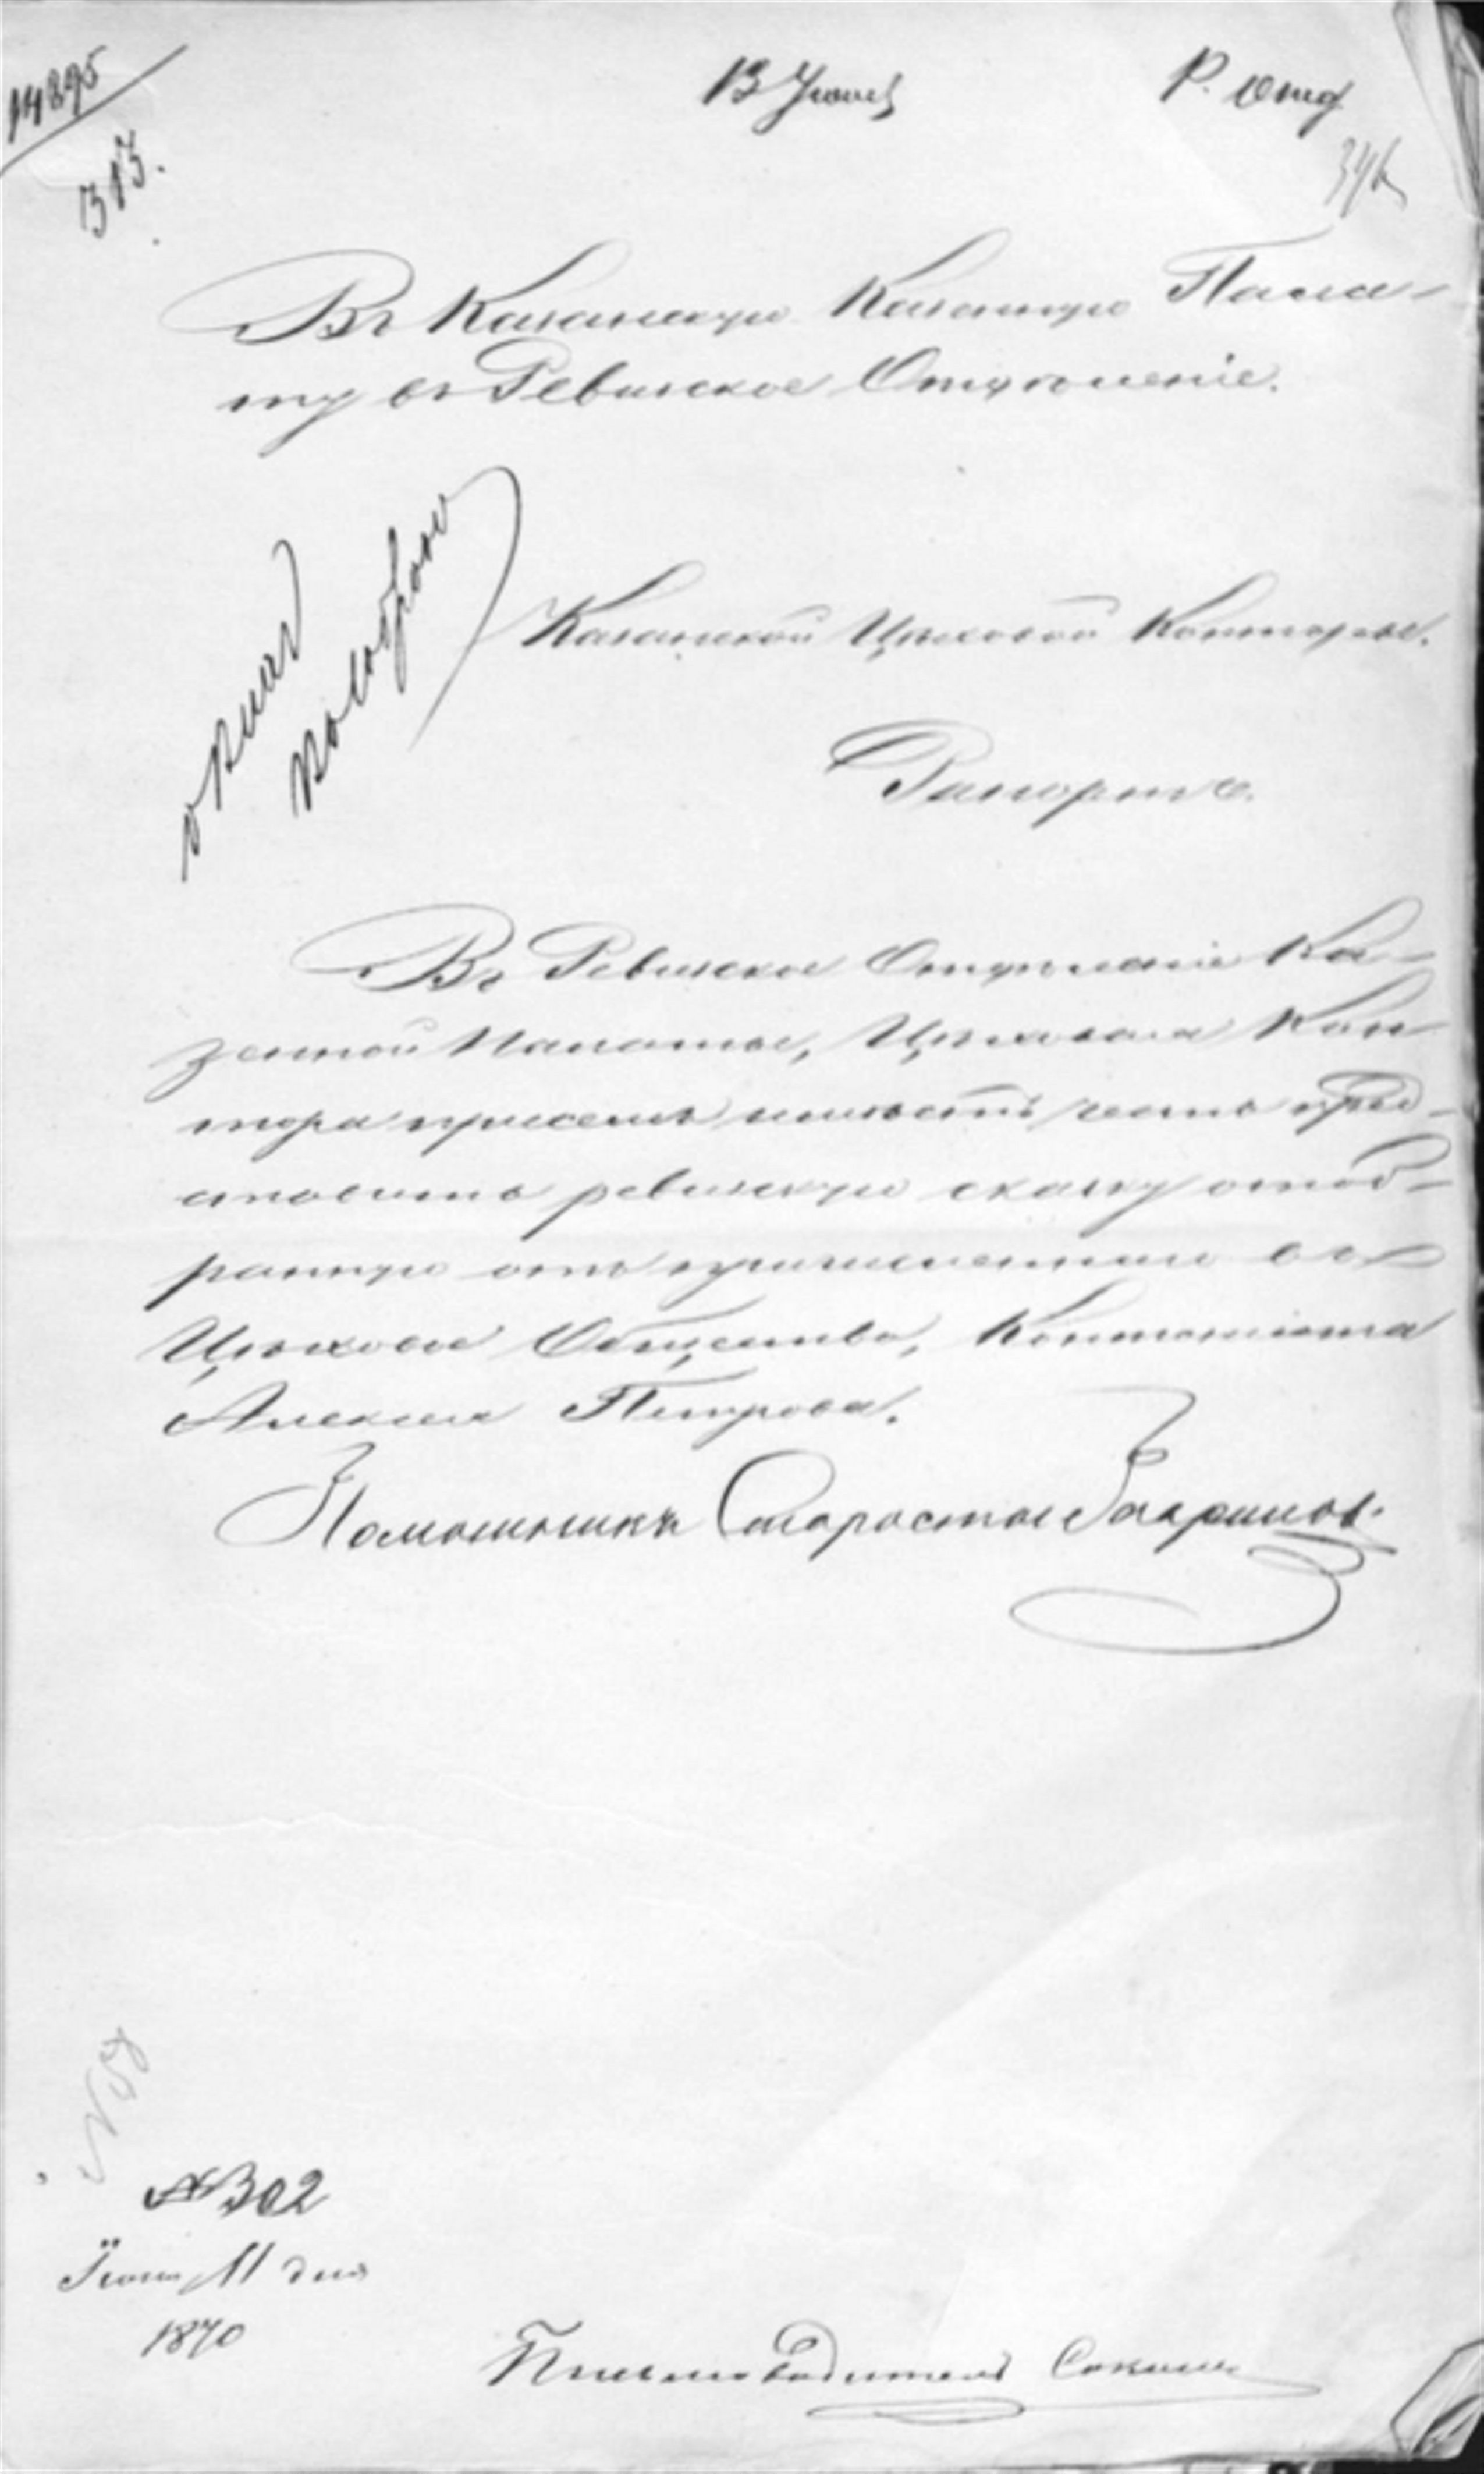 14895
313.
13 Июня
Р. Отд
Въ Казанскую Казенную Пала-
ту въ Ревизское Отдѣленіе.
Казанской Цѣховой Конторы.
Рапортъ.
Въ Ревизское Отдѣленіе Ка-
зенной Палаты, Цѣховая Кон
тора при семъ имѣетъ честь пред-
ставить ревизскую сказку отоб-
ранную отъ причисленнаго въ
Цѣховое Общество, Кантониста
Алексея Петрова.
Помошникъ Старосты
№ 302
Іюня 11 дня
1870
Письмоводитель